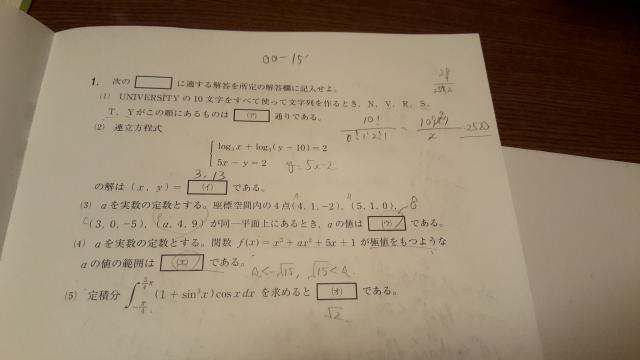 00-15
1. 次の に適する解答を所定の解答欄に記入せよ。
(1) UNIVERSITY の 10 文字をすべて使って文字列を作るとき, N, V, R, S,
T, Y がこの順にあるものは (ア) 通りである。
10!
6!1!2!1
2520
(2) 連立方程式
log₃x + log₃(y − 10) = 2
5x − y = 2
y=5x-2
3, 13
の解は (x, y) = (イ) である。
(3) a を実数の定数とする。座標空間内の 4 点 (4, 1, −2), (5, 1, 0),
8
(3, 0, −5), (a, 4, 9) が同一平面上にあるとき, a の値は (ウ) である。
(4) a を実数の定数とする。関数 f(x) = x³ + ax² + 5x + 1 が極値をもつような
a の値の範囲は (エ) である。
a<-√15, √15<a
(5) 定積分 ∫_{-π/4}^{3/4 π} (1 + sin³x) cos x dx を求めると (オ) である。
√2